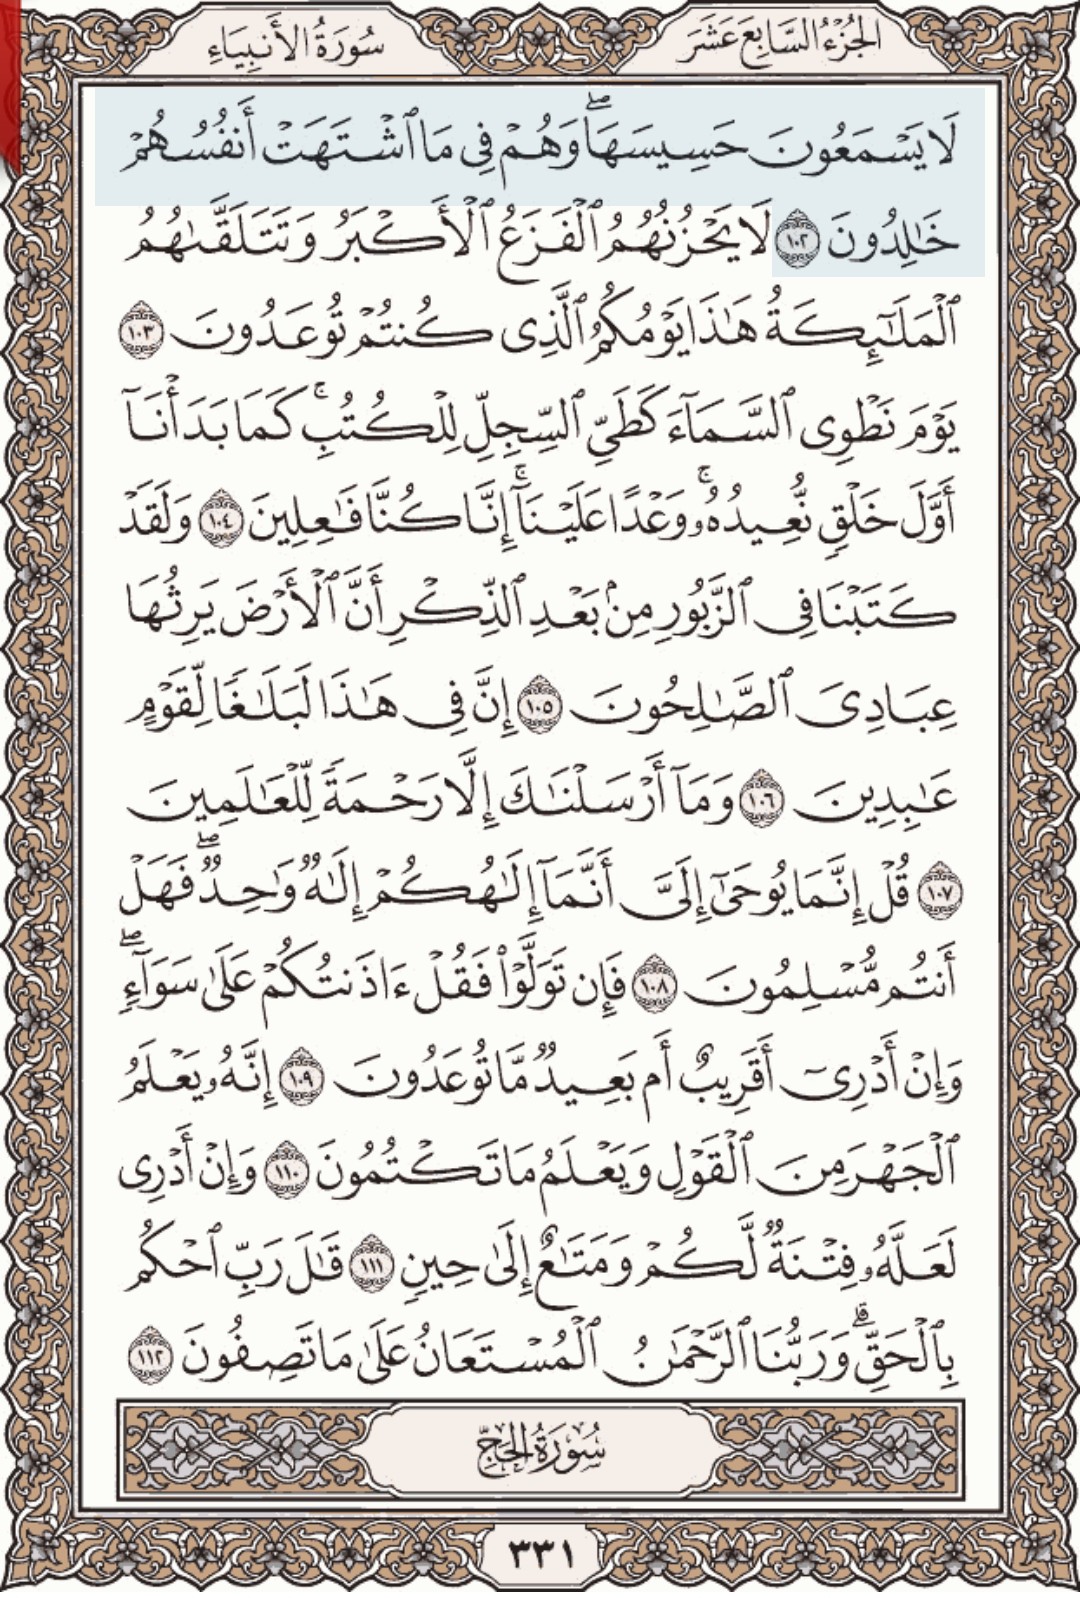 الجزء السابع عشر
سورة الأنبياء
لَا يَسْمَعُونَ حَسِيسَهَاۖ وَهُمْ فِى مَا ٱشْتَهَتْ أَنفُسُهُمْ
خَـٰلِدُونَ ١٠٢ لَا يَحْزُنُهُمُ ٱلْفَزَعُ ٱلْأَكْبَرُ وَتَتَلَقَّىٰهُمُ
ٱلْمَلَـٰٓئِكَةُ هَـٰذَا يَوْمُكُمُ ٱلَّذِى كُنتُمْ تُوعَدُونَ ١٠٣
يَوْمَ نَطْوِى ٱلسَّمَآءَ كَطَىِّ ٱلسِّجِلِّ لِلْكُتُبِۚ كَمَا بَدَأْنَآ
أَوَّلَ خَلْقٍ نُّعِيدُهُۥۚ وَعْدًا عَلَيْنَآۚ إِنَّا كُنَّا فَـٰعِلِينَ ١٠٤ وَلَقَدْ
كَتَبْنَا فِى ٱلزَّبُورِ مِنۢ بَعْدِ ٱلذِّكْرِ أَنَّ ٱلْأَرْضَ يَرِثُهَا
عِبَادِىَ ٱلصَّـٰلِحُونَ ١٠٥ إِنَّ فِى هَـٰذَا لَبَلَـٰغًا لِّقَوْمٍ
عَـٰبِدِينَ ١٠٦ وَمَآ أَرْسَلْنَـٰكَ إِلَّا رَحْمَةً لِّلْعَـٰلَمِينَ
١٠٧ قُلْ إِنَّمَا يُوحَىٰٓ إِلَىَّ أَنَّمَآ إِلَـٰهُكُمْ إِلَـٰهٌ وَٰحِدٌۖ فَهَلْ
أَنتُم مُّسْلِمُونَ ١٠٨ فَإِن تَوَلَّوْا۟ فَقُلْ ءَاذَنتُكُمْ عَلَىٰ سَوَآءٍۖ
وَإِنْ أَدْرِىٓ أَقَرِيبٌ أَم بَعِيدٌ مَّا تُوعَدُونَ ١٠٩ إِنَّهُۥ يَعْلَمُ
ٱلْجَهْرَ مِنَ ٱلْقَوْلِ وَيَعْلَمُ مَا تَكْتُمُونَ ١١٠ وَإِنْ أَدْرِى
لَعَلَّهُۥ فِتْنَةٌ لَّكُمْ وَمَتَـٰعٌ إِلَىٰ حِينٍ ١١١ قَـٰلَ رَبِّ ٱحْكُم
بِٱلْحَقِّۗ وَرَبُّنَا ٱلرَّحْمَـٰنُ ٱلْمُسْتَعَانُ عَلَىٰ مَا تَصِفُونَ ١١٢
سورة الحج
٣٣١